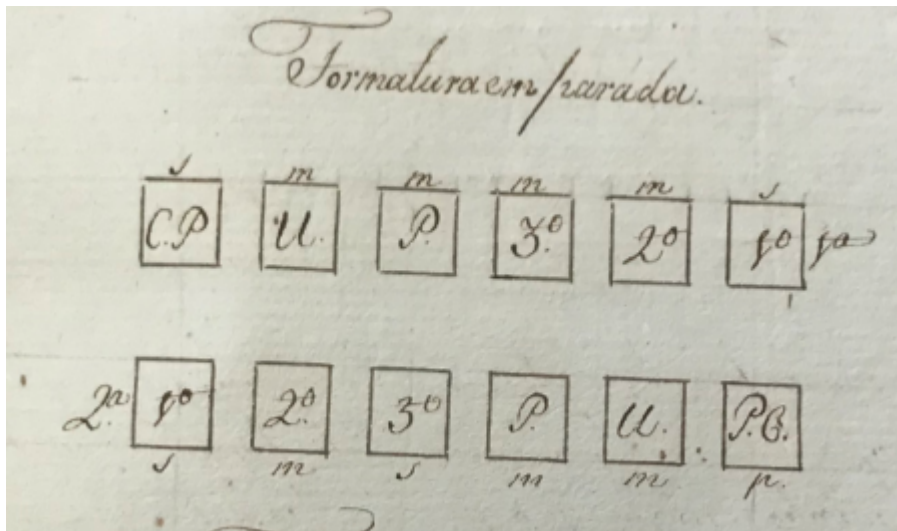 Formatura em parada.
s m m m m s
C.P U. P. 3.º 2º 1º 1ª
2.ª 1º 2.º 3º P. U. P.B.
s m s m m p.